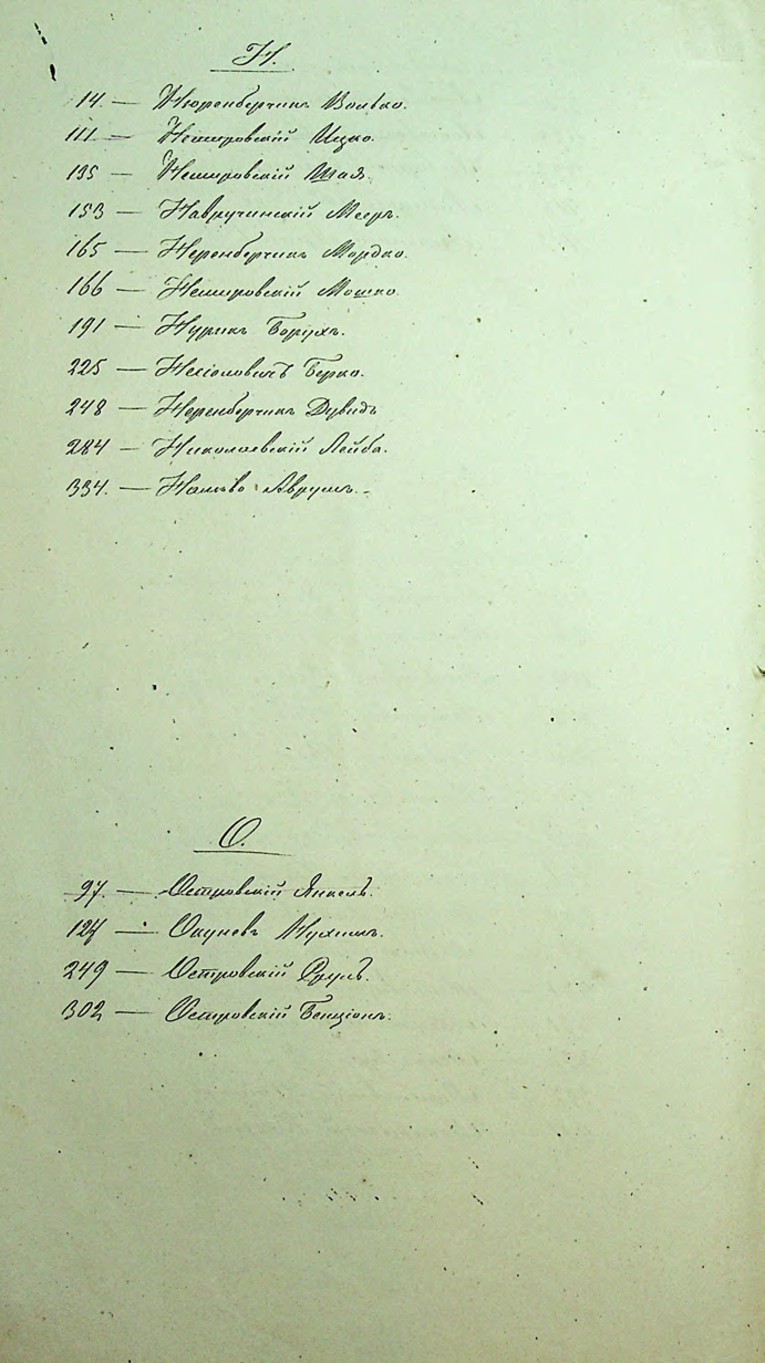 Н.
14. — Нюренберчикъ Волько.
111 — Немировскій Ицко.
135 — Немировскій Шая.
153 — Навручинскій Мееръ.
165 — Неренберчикъ Мордко.
166 — Немировскій Мошко.
191 — Нурикъ Борухъ.
225 — Берко.
248 — Неренберчикъ Дувидъ
284 — Николаевскій Лейба.
334. — Аврумъ.
О.
97. — Островскій Янкель.
124 — Окуневъ Нухимъ.
249 — Островскій Сруль.
302 — Островскій Бенціонъ.